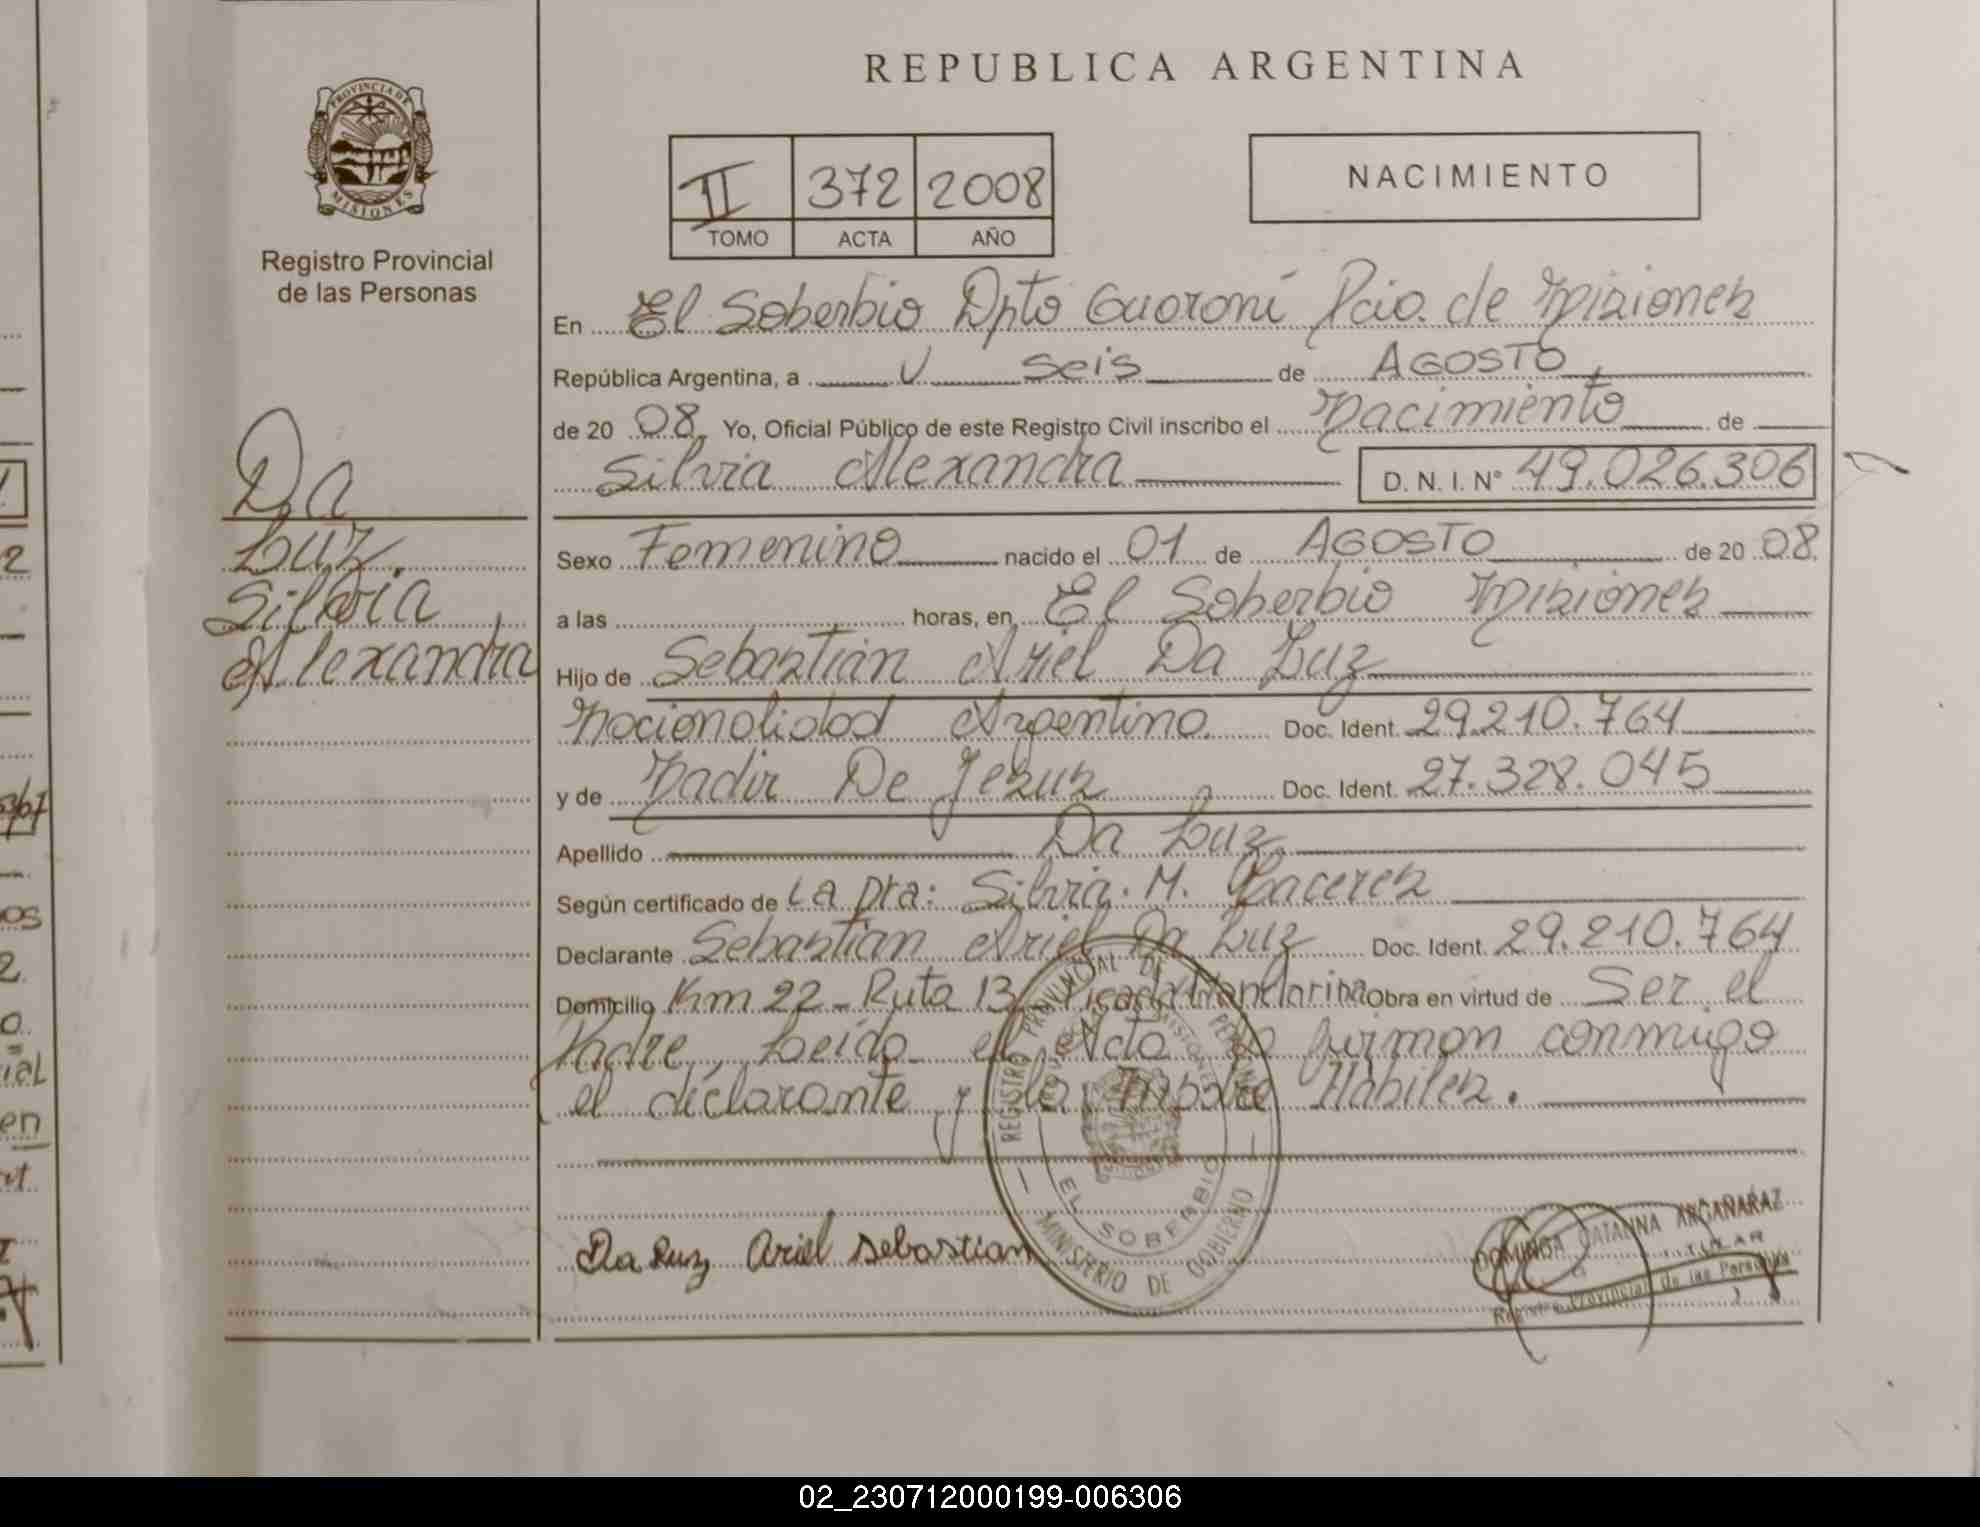 REPUBLICA ARGENTINA
PROVINCIA DE
MISIONES
Registro Provincial
de las Personas
II 372 2008
TOMO ACTA AÑO
NACIMIENTO
En El Soberbio Dpto Guaraní Pcia. de Misiones
República Argentina, a seis de AGOSTO
de 20 08 Yo, Oficial Público de este Registro Civil inscribo el Nacimiento de
Silvia Alexandra D. N. I. Nº 49.026.306
Da
Luz
Silvia
Alexandra
Sexo Femenino nacido el 01 de AGOSTO de 20 08.
a las horas, en El Soberbio Misiones
Hijo de Sebastian Ariel Da Luz
Nacionalidad Argentina Doc. Ident. 29.210.764
y de Nadir De Jesus Doc. Ident. 27.328.045
Apellido Da Luz
Según certificado de La Dra: Silvia. M. Caceres
Declarante Sebastian Ariel Da Luz Doc. Ident. 29.210.764
Domicilio Km 22 - Ruta 13 Picada Mandarina Obra en virtud de Ser el
Padre, Leída el Acta la firman conmigo
el declarante y la Madre Hábiles.
REGISTRO PROVINCIAL DE PERSONAS
MISIONES
EL SOBERBIO
MINISTERIO DE GOBIERNO
Da Luz Ariel Sebastian
DOMINGA CATALINA ARGAÑARAZ
TITULAR
Registro Provincial de las Personas
02_230712000199-006306